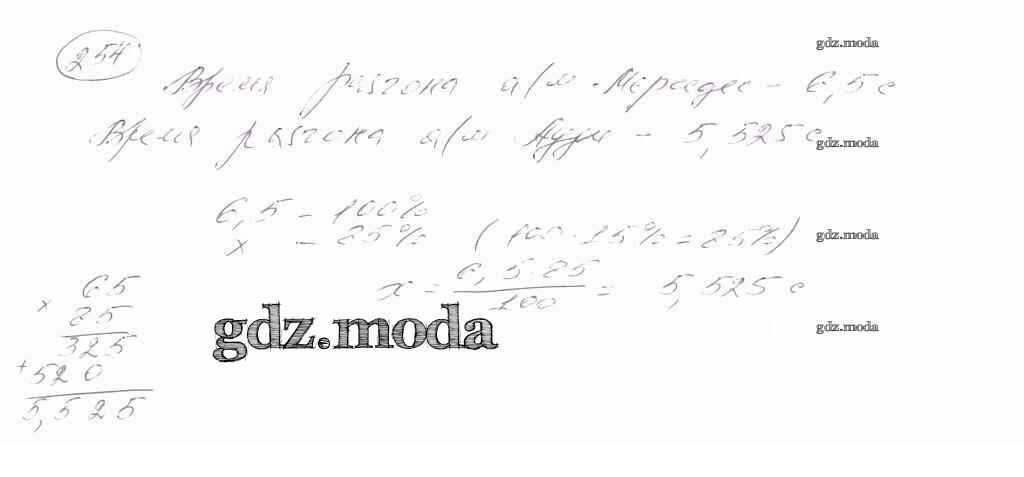 254
gdz.moda
Время разгона а/м Мерседес - 6,5 с
Время разгона а/м Ауди - 5,525 с
gdz.moda
6,5 - 100%
x - 85% (100 - 15% = 85%)
gdz.moda
x = 6,5·85 / 100 = 5,525 с
x 65
85
325
+ 520
5,525
gdz.moda
gdz.moda